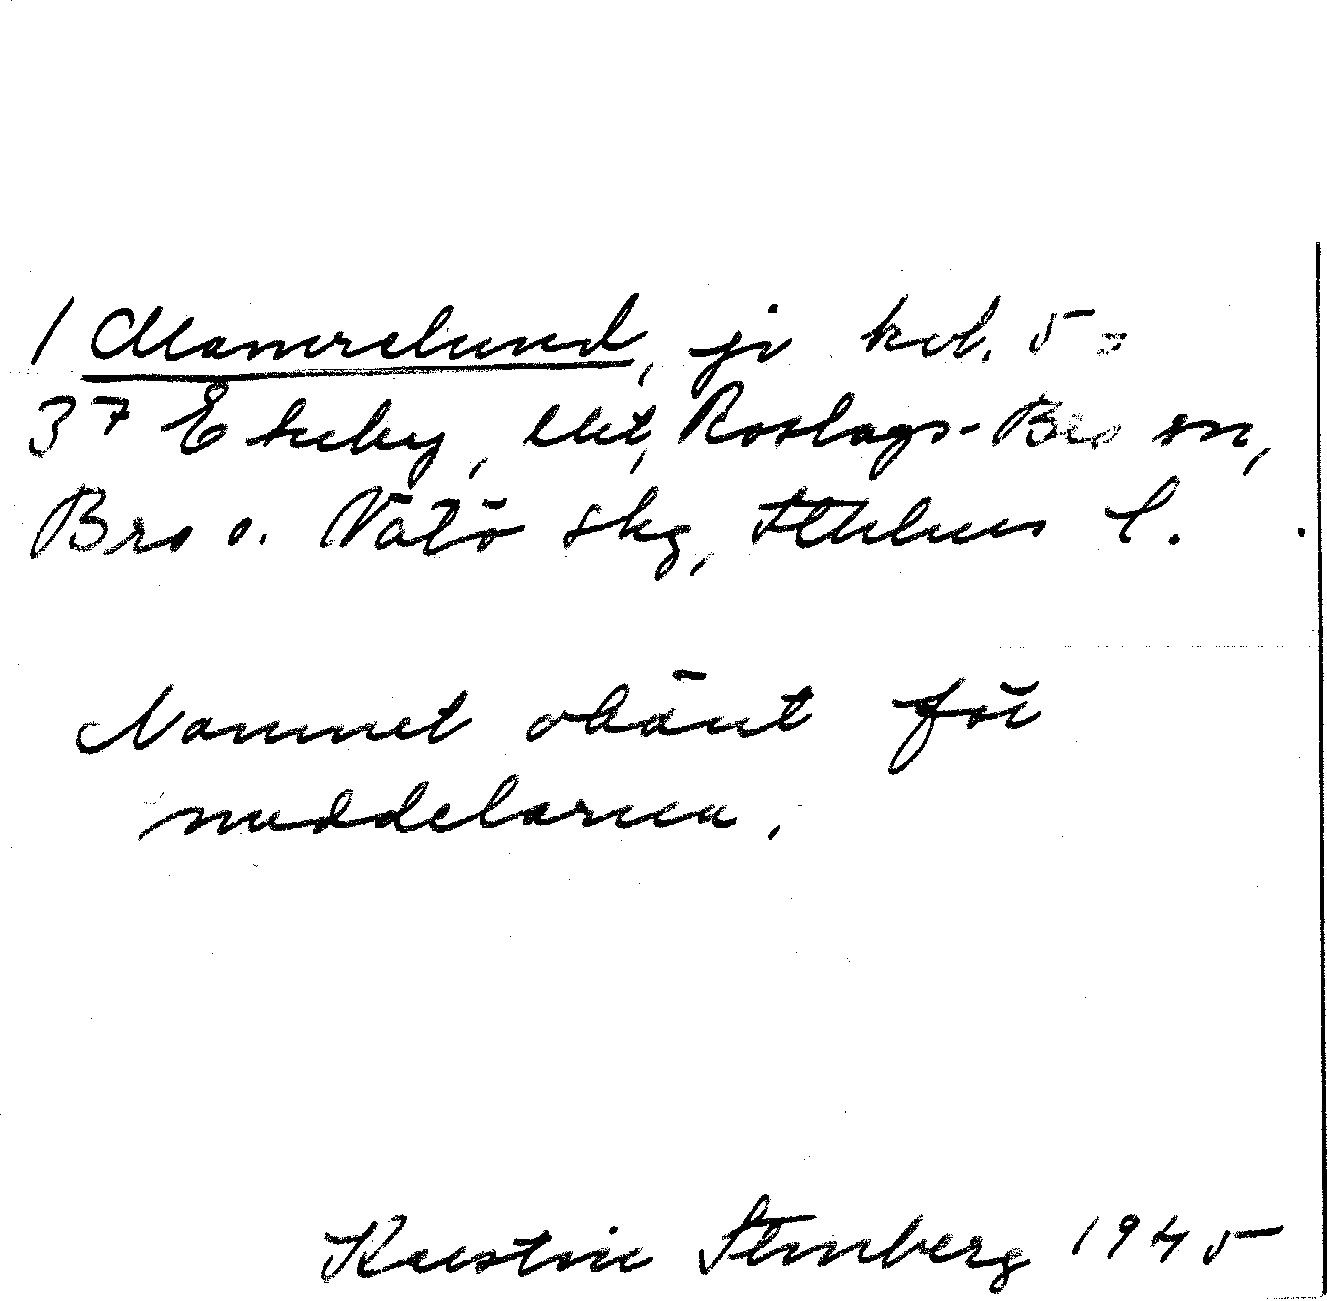 / Mamrelund, jr kvl. 5 =
3⁷ Eskeby, lht, Roslags-Bro sn,
Bro o. Vätö skg, Sthlms l.
Namnet okänt för
meddelarna.
Kerstin Stenberg 1945